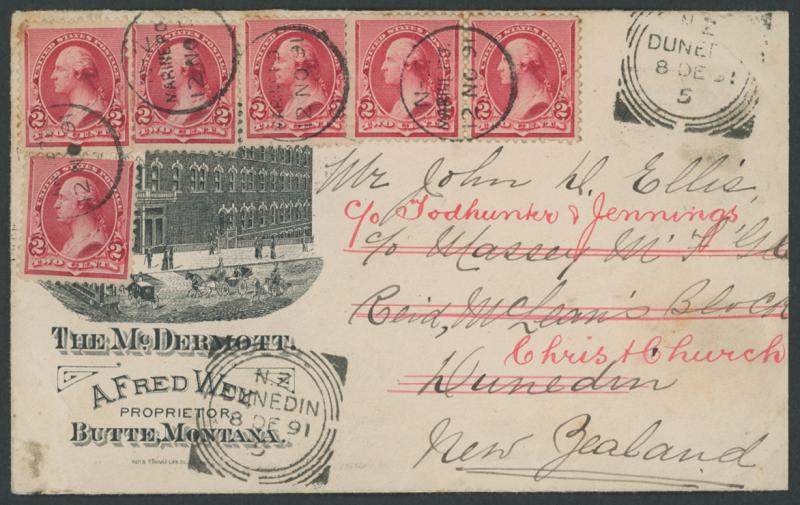 UNITED STATES POSTAGE
2 2
TWO CENTS
UNITED STATES POSTAGE
2 2
TWO CENTS
UNITED STATES POSTAGE
2 2
TWO CENTS
UNITED STATES POSTAGE
2 2
TWO CENTS
UNITED STATES POSTAGE
2 2
TWO CENTS
2 2
TWO CENTS
12 NO
12 NO 91
12 NO 91
N.Z
DUNEDIN
8 DE 91
5
Mr John D. Ellis,
c/o Todhunter & Jennings
c/o Massey M'F'G Co
Reid, McLean's Block
Christ Church
Dunedin
New Zealand
THE McDERMOTT.
A. FRED WEY
PROPRIETOR
BUTTE, MONTANA.
N.Z
DUNEDIN
8 DE 91
5